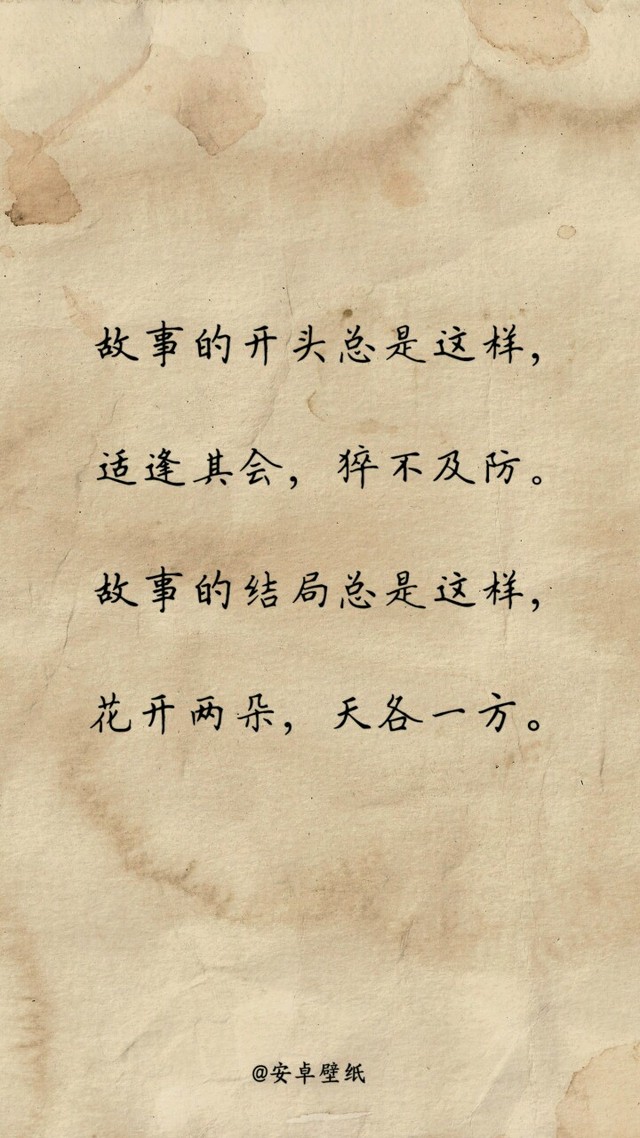 故事的开头总是这样，
适逢其会，猝不及防。
故事的结局总是这样，
花开两朵，天各一方。
@安卓壁纸